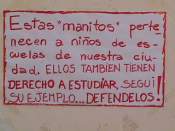 Estas "manitos" perte
necen a niños de es-
cuelas de nuestra ciu-
dad. ELLOS TAMBIEN TIENEN
DERECHO A ESTUDIAR, SEGUI
SU EJEMPLO... DEFENDELOS!